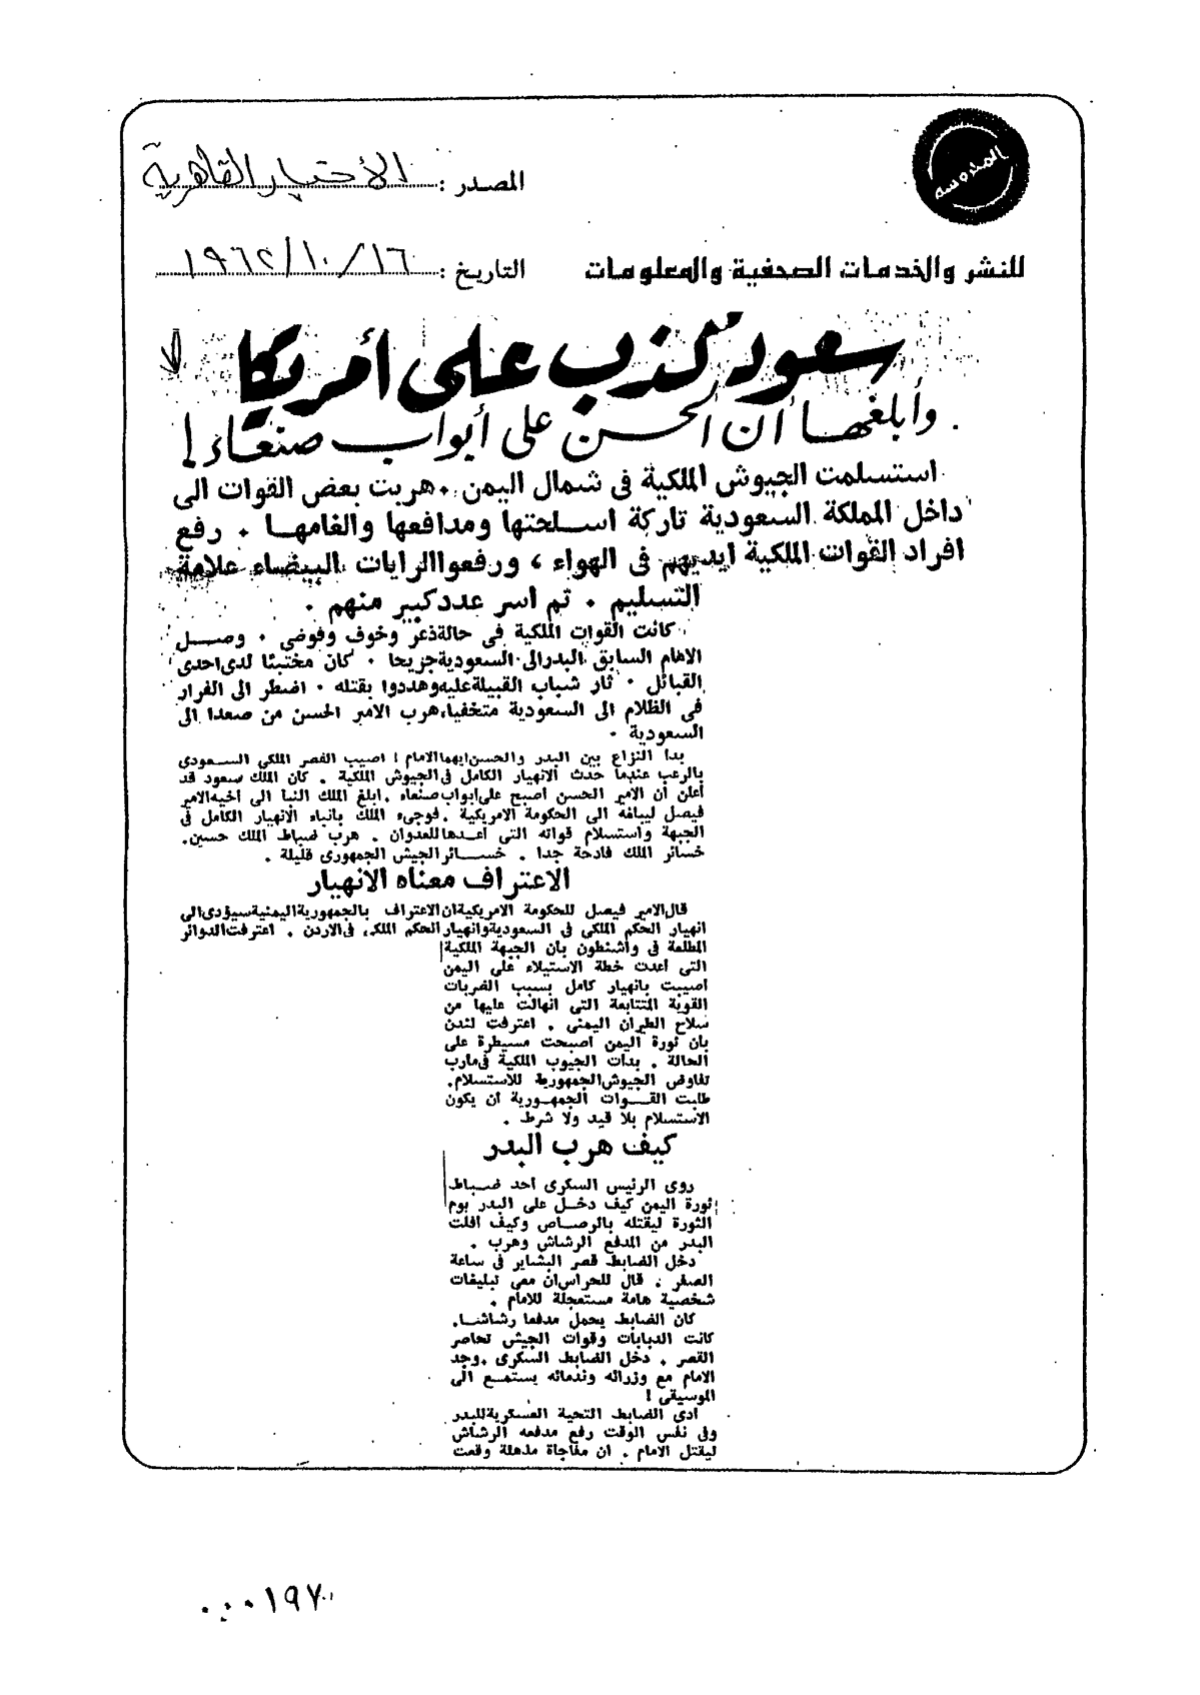 المدروسه
المصدر : الأخبار القاهرية
للنشر والخدمات الصحفية والمعلومات
التاريخ : ١٦/١٠/١٩٦٢
سعود كذب على أمريكا
وأبلغها أن الحسن على أبواب صنعاء !
استسلمت الجيوش الملكية فى شمال اليمن . هربت بعض القوات الى
داخل المملكة السعودية تاركة اسلحتها ومدافعها والغامها . رفع
افراد القوات الملكية ايديهم فى الهواء ، ورفعوا الرايات البيضاء علامة
التسليم . تم اسر عدد كبير منهم .
كانت القوات الملكية فى حالة ذعر وخوف وفوضى . وصل
الامام السابق البدر الى السعودية جريحا . كان مختبئا لدى احدى
القبائل . ثار شباب القبيلة عليه وهددوا بقتله . اضطر الى الفرار
فى الظلام الى السعودية متخفيا، هرب الامير الحسن من صعدا الى
السعودية .
بدا النزاع بين البدر والحسن ايهما الامام ! اصيب القصر الملكى السعودى
بالرعب عندما حدث الانهيار الكامل فى الجيوش الملكية . كان الملك سعود قد
أعلن أن الامير الحسن اصبح على ابواب صنعاء . ابلغ الملك النبا الى اخيه الامير
فيصل ليبلغه الى الحكومة الامريكية . فوجىء الملك بانباء الانهيار الكامل فى
الجبهة واستسلام قواته التى اعدها للعدوان . هرب ضباط الملك حسين.
خسائر الملك فادحة جدا . خسائر الجيش الجمهورى قليلة .
الاعتراف معناه الانهيار
قال الامير فيصل للحكومة الامريكية ان الاعتراف بالجمهورية اليمنية سيؤدى الى
انهيار الحكم الملكى فى السعودية وانهيار الحكم الملكى فى الاردن . اعترفت الدوائر
المطلعة فى واشنطون بان الجبهة الملكية
التى اعدت خطة الاستيلاء على اليمن
اصيبت بانهيار كامل بسبب الضربات
القوية المتتابعة التى انهالت عليها من
سلاح الطيران اليمنى . اعترفت لندن
بان ثورة اليمن اصبحت مسيطرة على
الحالة . بدات الجيوب الملكية فى مارب
تفاوض الجيوش الجمهورية للاستسلام.
طلبت القوات الجمهورية ان يكون
الاستسلام بلا قيد ولا شرط .
كيف هرب البدر
روى الرئيس السكرى احد ضباط
ثورة اليمن كيف دخل على البدر يوم
الثورة ليقتله بالرصاص وكيف افلت
البدر من المدفع الرشاش وهرب .
دخل الضابط قصر البشاير فى ساعة
الصفر . قال للحراس ان معى تبليغات
شخصية هامة مستعجلة للامام .
كان الضابط يحمل مدفعا رشاشا.
كانت الدبابات وقوات الجيش تحاصر
القصر . دخل الضابط السكرى . وجد
الامام مع وزرائه وندمائه يستمع الى
الموسيقى !
ادى الضابط التحية العسكرية للبدر
وفى نفس الوقت رفع مدفعه الرشاش
ليقتل الامام . ان مفاجاة مذهلة وقعت
٠٠٠١٩٧٠